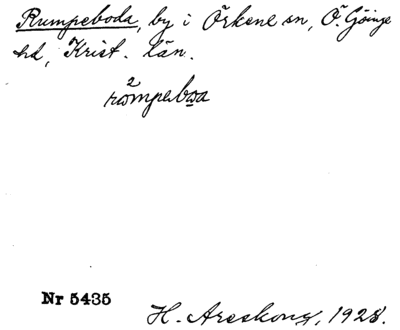 Rumpeboda, by i Örkene sn, Ö. Göinge
hd, Krist. län.
Nr 5435
H. Areskoug, 1928.